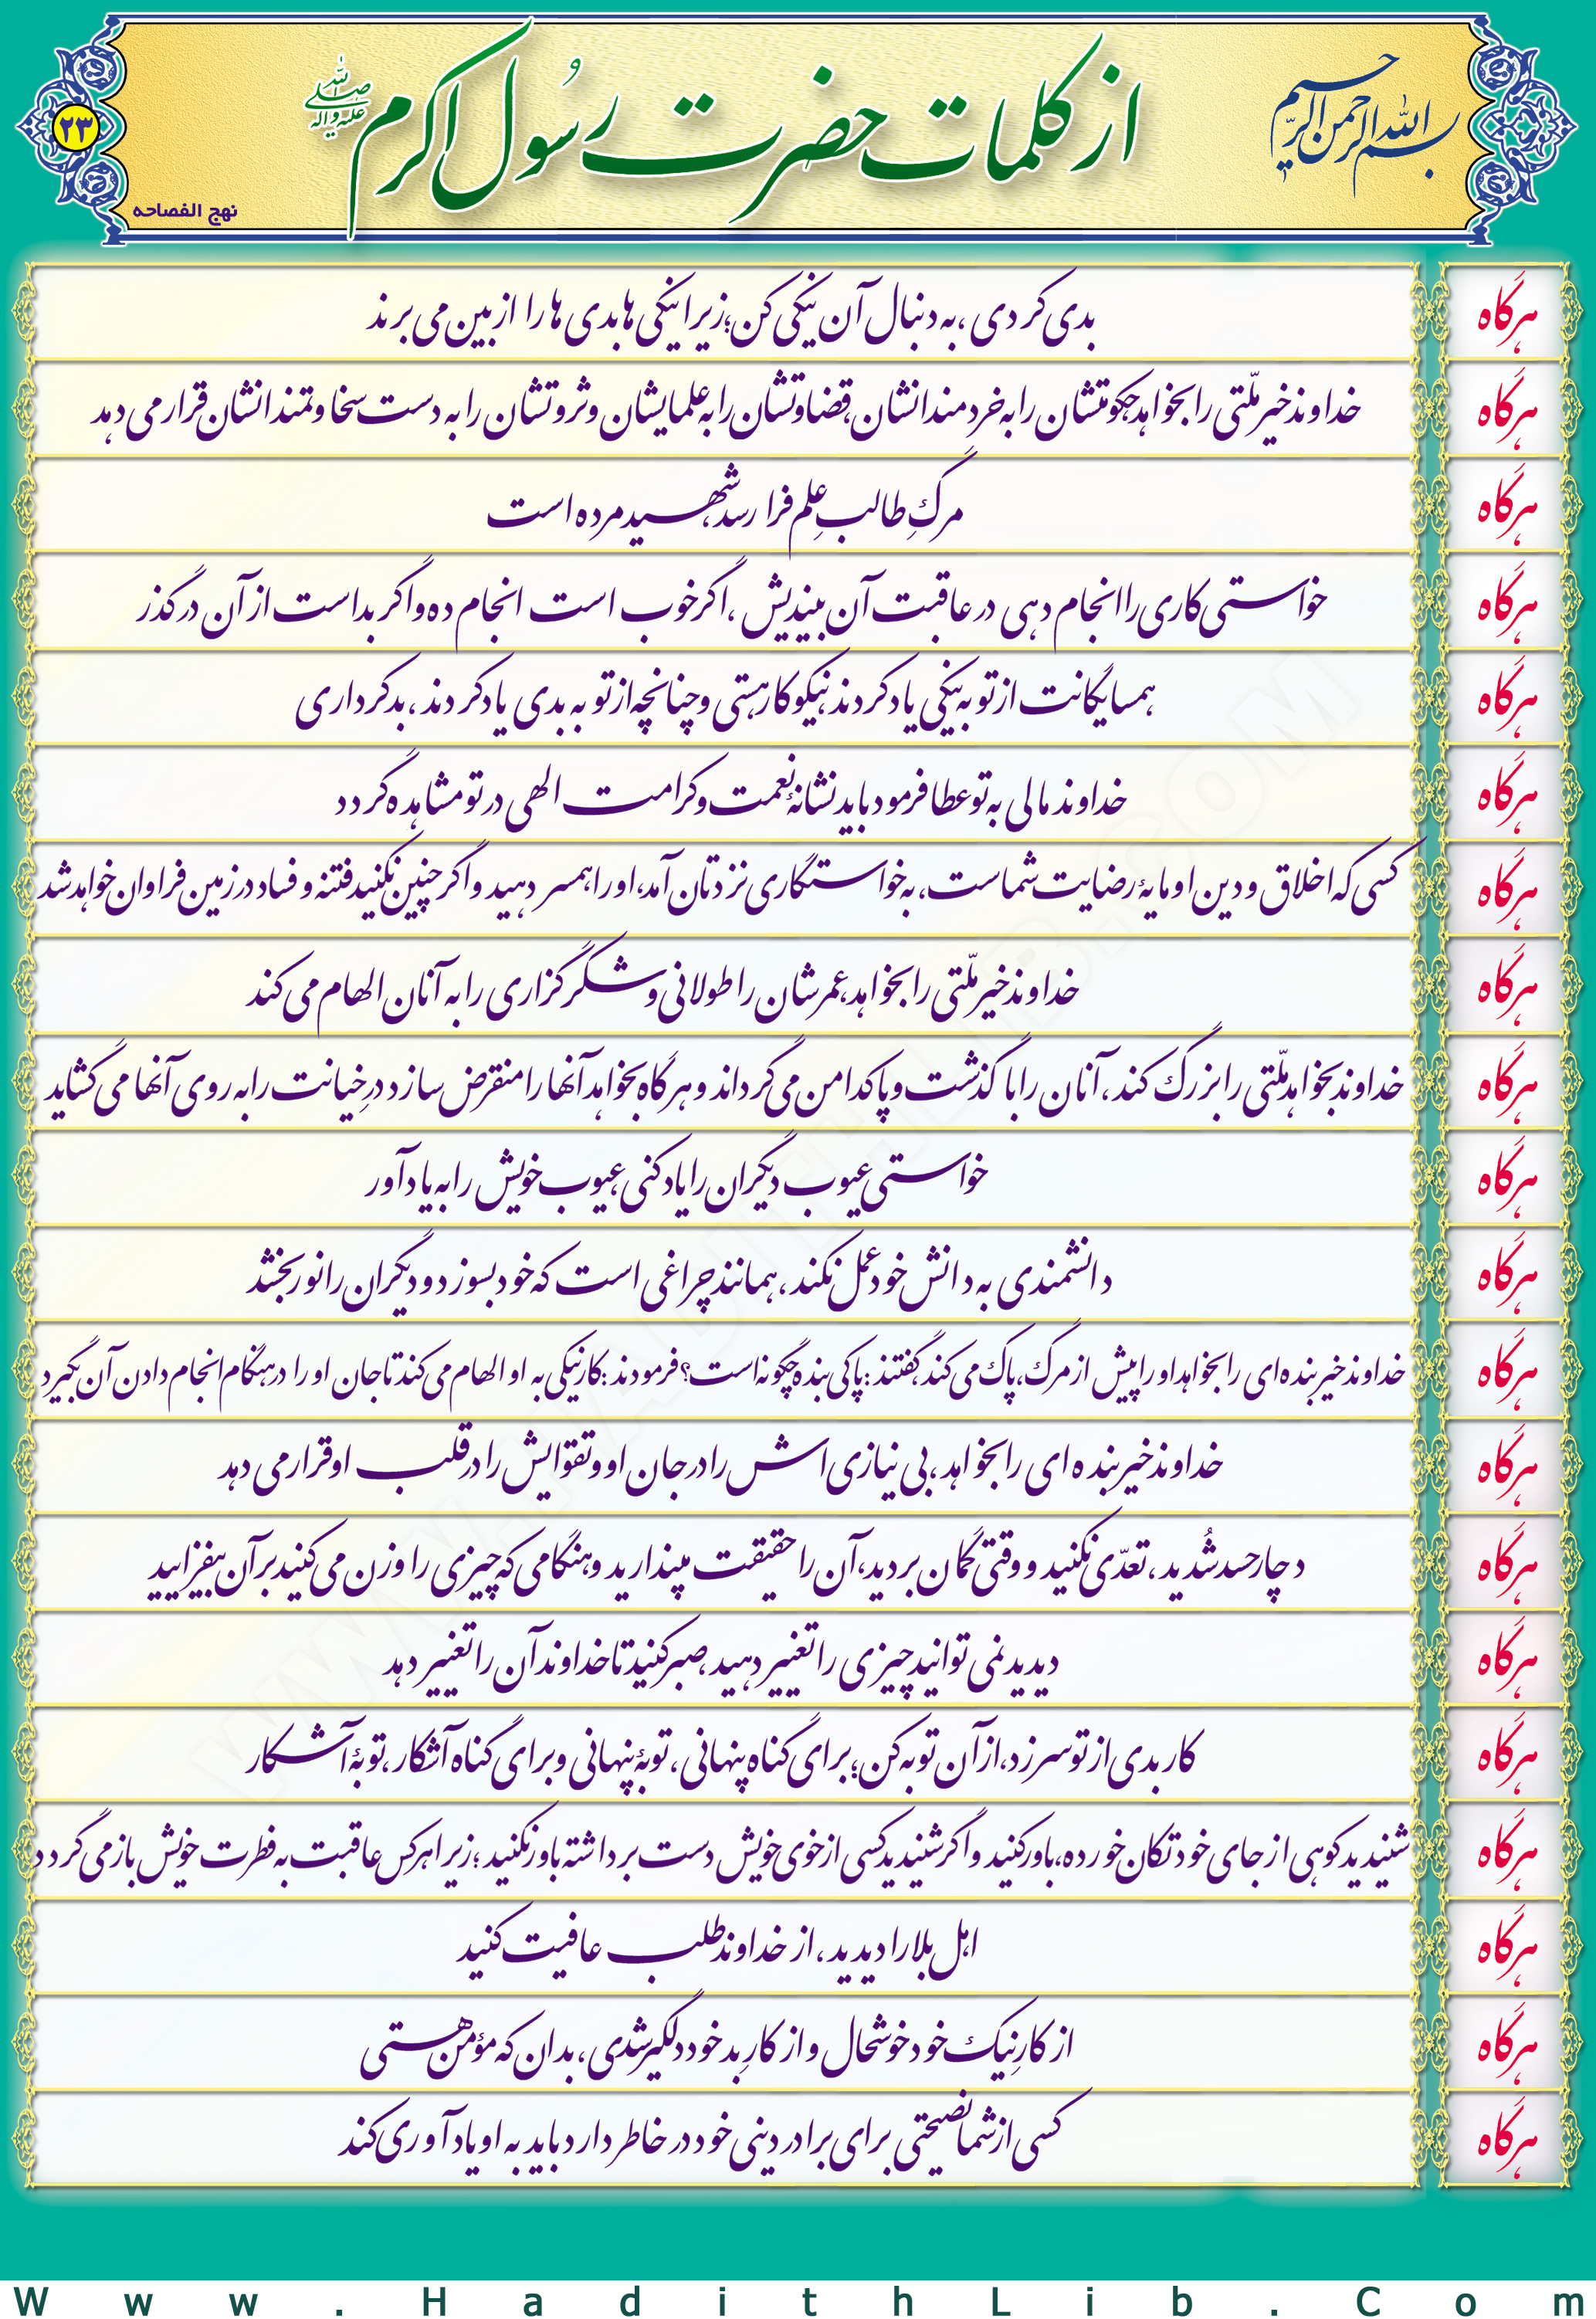 بسم الله الرحمن الرحیم
از کلمات حضرت رسول اکرم صلی الله علیه و آله
۲۳
نهج الفصاحه
هرگاه بدی کردی، به دنبال آن نیکی کن؛ زیرا نیکی ها بدی ها را از بین می برند
هرگاه خداوند خیر ملّتی را بخواهد، حکومتشان را به خردمندانشان، قضاوتشان را به علمایشان و ثروتشان را به دست سخاوتمندانشان قرار می دهد
هرگاه مرگِ طالب عِلم فرا رسد، شهید مرده است
هرگاه خواستی کاری را انجام دهی در عاقبت آن بیندیش، اگر خوب است انجام ده و اگر بد است از آن درگذر
هرگاه همسایگانت از تو به نیکی یاد کردند، نیکوکار هستی و چنانچه از تو به بدی یاد کردند، بدکرداری
هرگاه خداوند مالی به تو عطا فرمود باید نشانهٔ نعمت و کرامت الهی در تو مشاهده گردد
هرگاه کسی که اخلاق و دین او مایهٔ رضایت شماست، به خواستگاری نزدتان آمد، او را همسر دهید و اگر چنین نکنید فتنه و فساد در زمین فراوان خواهد شد
هرگاه خداوند خیر ملّتی را بخواهد، عمرشان را طولانی و شکرگزاری را به آنان الهام می کند
هرگاه خداوند بخواهد ملّتی را بزرگ کند، آنان را با گذشت و پاکدامن می گرداند و هرگاه بخواهد آنها را منقرض سازد درِ خیانت را به روی آنها می گشاید
هرگاه خواستی عیوب دیگران را یاد کنی، عیوب خویش را به یاد آور
هرگاه دانشمندی به دانش خود عمل نکند، همانند چراغی است که خود بسوزد و دیگران را نور بخشد
هرگاه خداوند خیر بنده ای را بخواهد او را پیش از مرگ، پاک می کند، گفتند: پاکی بنده چگونه است؟ فرمودند: کار نیکی به او الهام می کند تا جان او را در هنگام انجام دادن آن بگیرد
هرگاه خداوند خیر بنده ای را بخواهد، بی نیازی اش را در جان او و تقوایش را در قلب او قرار می دهد
هرگاه دچار حسد شُدید، تعدّی نکنید و وقتی گمان بردید، آن را حقیقت مپندارید و هنگامی که چیزی را وزن می کنید بر آن بیفزایید
هرگاه دیدید نمی توانید چیزی را تغییر دهید، صبر کنید تا خداوند آن را تغییر دهد
هرگاه کار بدی از تو سر زد، از آن توبه کن؛ برای گناه پنهانی، توبهٔ پنهانی و برای گناه آشکار، توبهٔ آشکار
هرگاه شنیدید کوهی از جای خود تکان خورده، باور کنید و اگر شنیدید کسی از خوی خویش دست برداشته باور نکنید؛ زیرا هر کس عاقبت به فطرت خویش باز می گردد
هرگاه اهل بلا را دیدید، از خداوند طلب عافیت کنید
هرگاه از کارِ نیک خود خوشحال و از کارِ بد خود دلگیر شدی، بدان که مؤمن هستی
هرگاه کسی از شما نصیحتی برای برادر دینی خود در خاطر دارد باید به او یادآوری کند
Www.HadithLib.Com